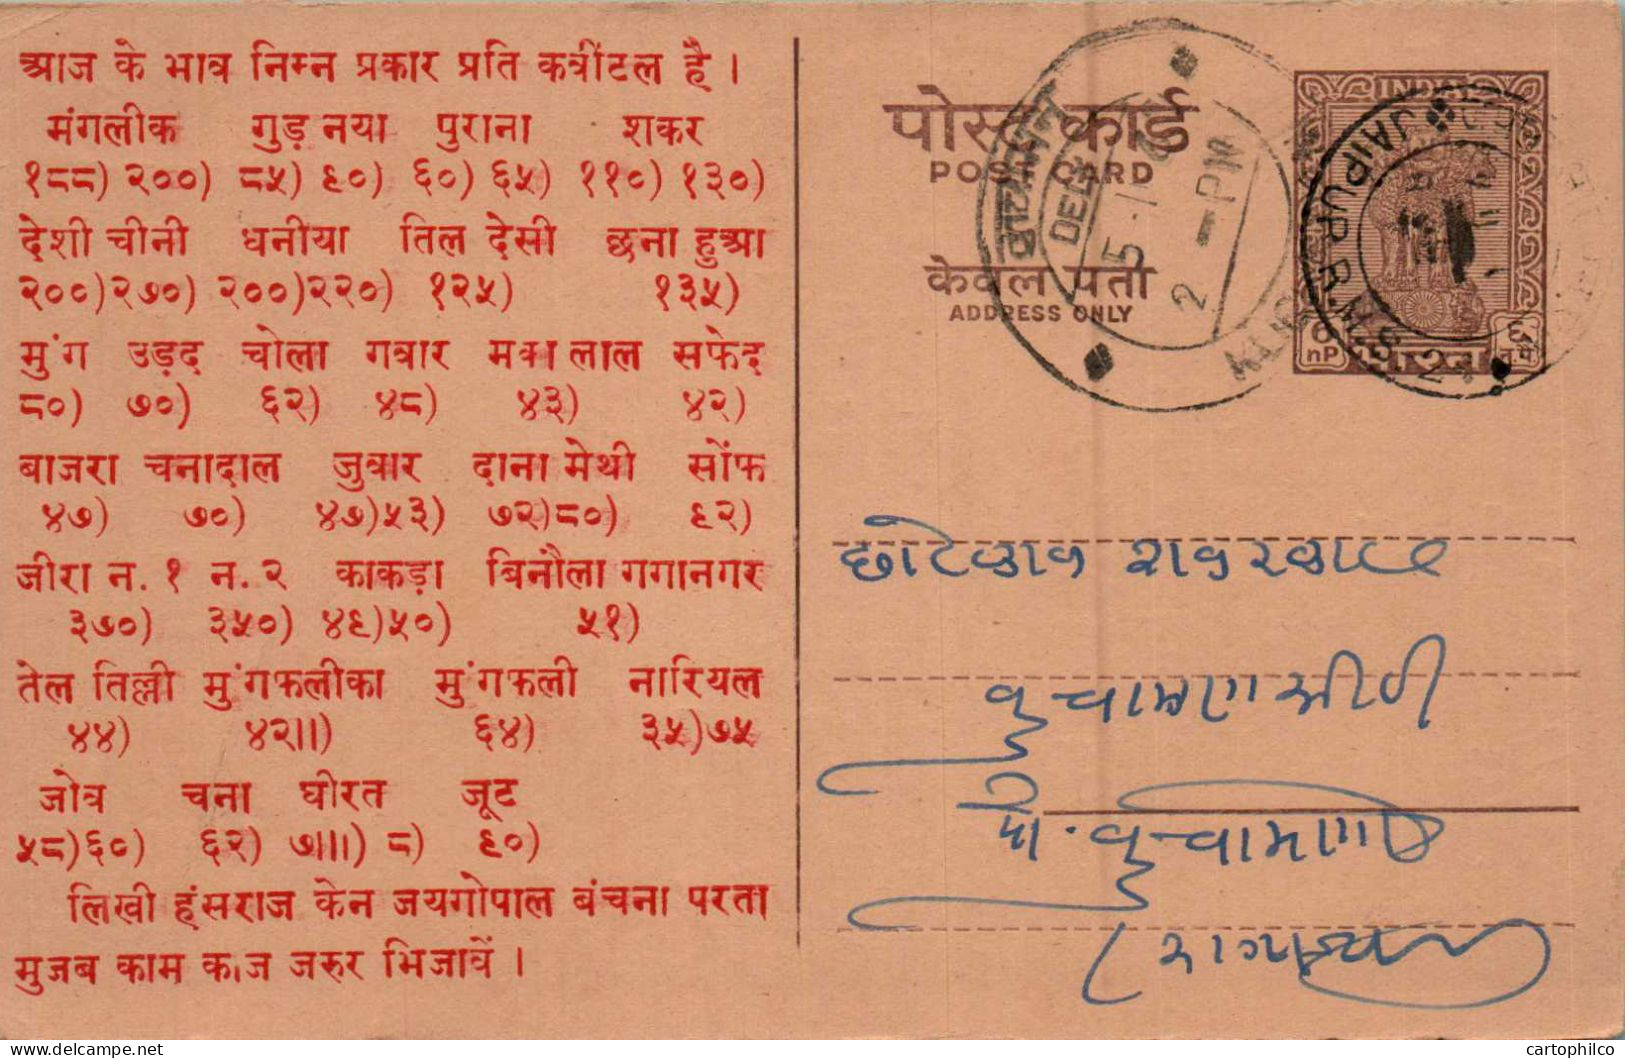 आज के भाव निम्न प्रकार प्रति कवींटल है ।
मंगलीक गुड़ नया पुराना शकर
१८८) २००) ८५) ९०) ६०) ६५) ११०) १३०)
देशी चीनी धनीया तिल देसी छना हुआ
२००) २७०) २००) २२०) १२५) १३५)
मुंग उड़द चोला गवार मका लाल सफेद
८०) ७०) ६२) ४८) ४३) ४२)
बाजरा चनादाल जुवार दाना मेथी सोंफ
४७) ७०) ४७) ५३) ७२) ८०) ९२)
जीरा न. १ न. २ काकड़ा बिनौला गगानगर
३७०) ३५०) ४९) ५०) ५१)
तेल तिल्ली मुंगफलीका मुंगफली नारियल
४४) ४२।।) ६४) ३५) ७५
जोव चना घीरत जूट
५८) ६०) ६२) ७।।।) ८) ९०)
लिखी हंसराज केन जयगोपाल बंचना परता
मुजब काम काज जरुर भिजावें ।
पोस्ट कार्ड
POST CARD
केवल पता
ADDRESS ONLY
INDIA
6 nP
भारत
६ न.पै.
कुचामन
DELY
2 - PM
JAIPUR R.M.S.
छोटेलाल शंकरलाल
कुचामण सीटी
पो. कुचामण
cartophilco